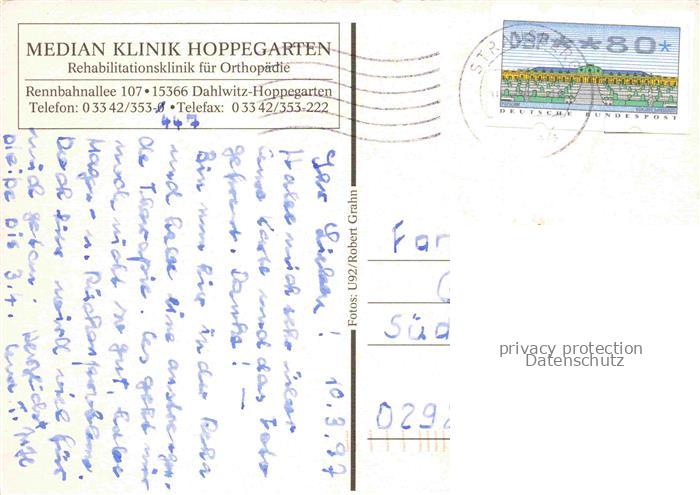 MEDIAN KLINIK HOPPEGARTEN
Rehabilitationsklinik für Orthopädie
Rennbahnallee 107 • 15366 Dahlwitz-Hoppegarten
Telefon: 0 33 42/353-0 • Telefax: 0 33 42/353-222
447
10.3.97
Ihr Lieben!
Habe mich sehr über
eure Karte und das Foto
gefreut. Danke! —
Bin nun hier in der Reha
und habe eine anstrengen-
de Therapie. Es geht mir
noch nicht so gut, habe
Magen- u. Rückenprobleme.
Doch hier wird viel für
mich getan.
bleibe bis 3.4.
Fotos: U92/Robert Grahn
DBP * 80 *
DEUTSCHE BUNDESPOST
STRA
Fam
Süd
029
privacy protection
Datenschutz